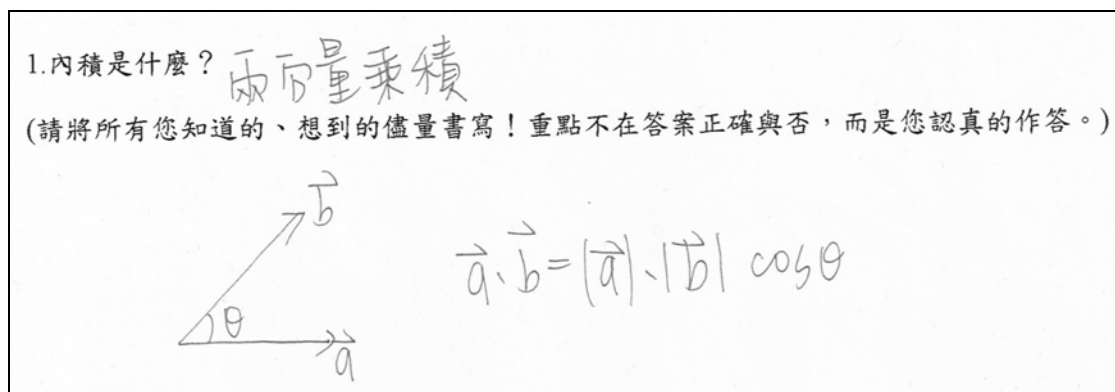 1.內積是什麼？兩向量乘積
(請將所有您知道的、想到的儘量書寫！重點不在答案正確與否，而是您認真的作答。)
b⃗
a⃗·b⃗=|a⃗|·|b⃗| cosθ
θ
a⃗